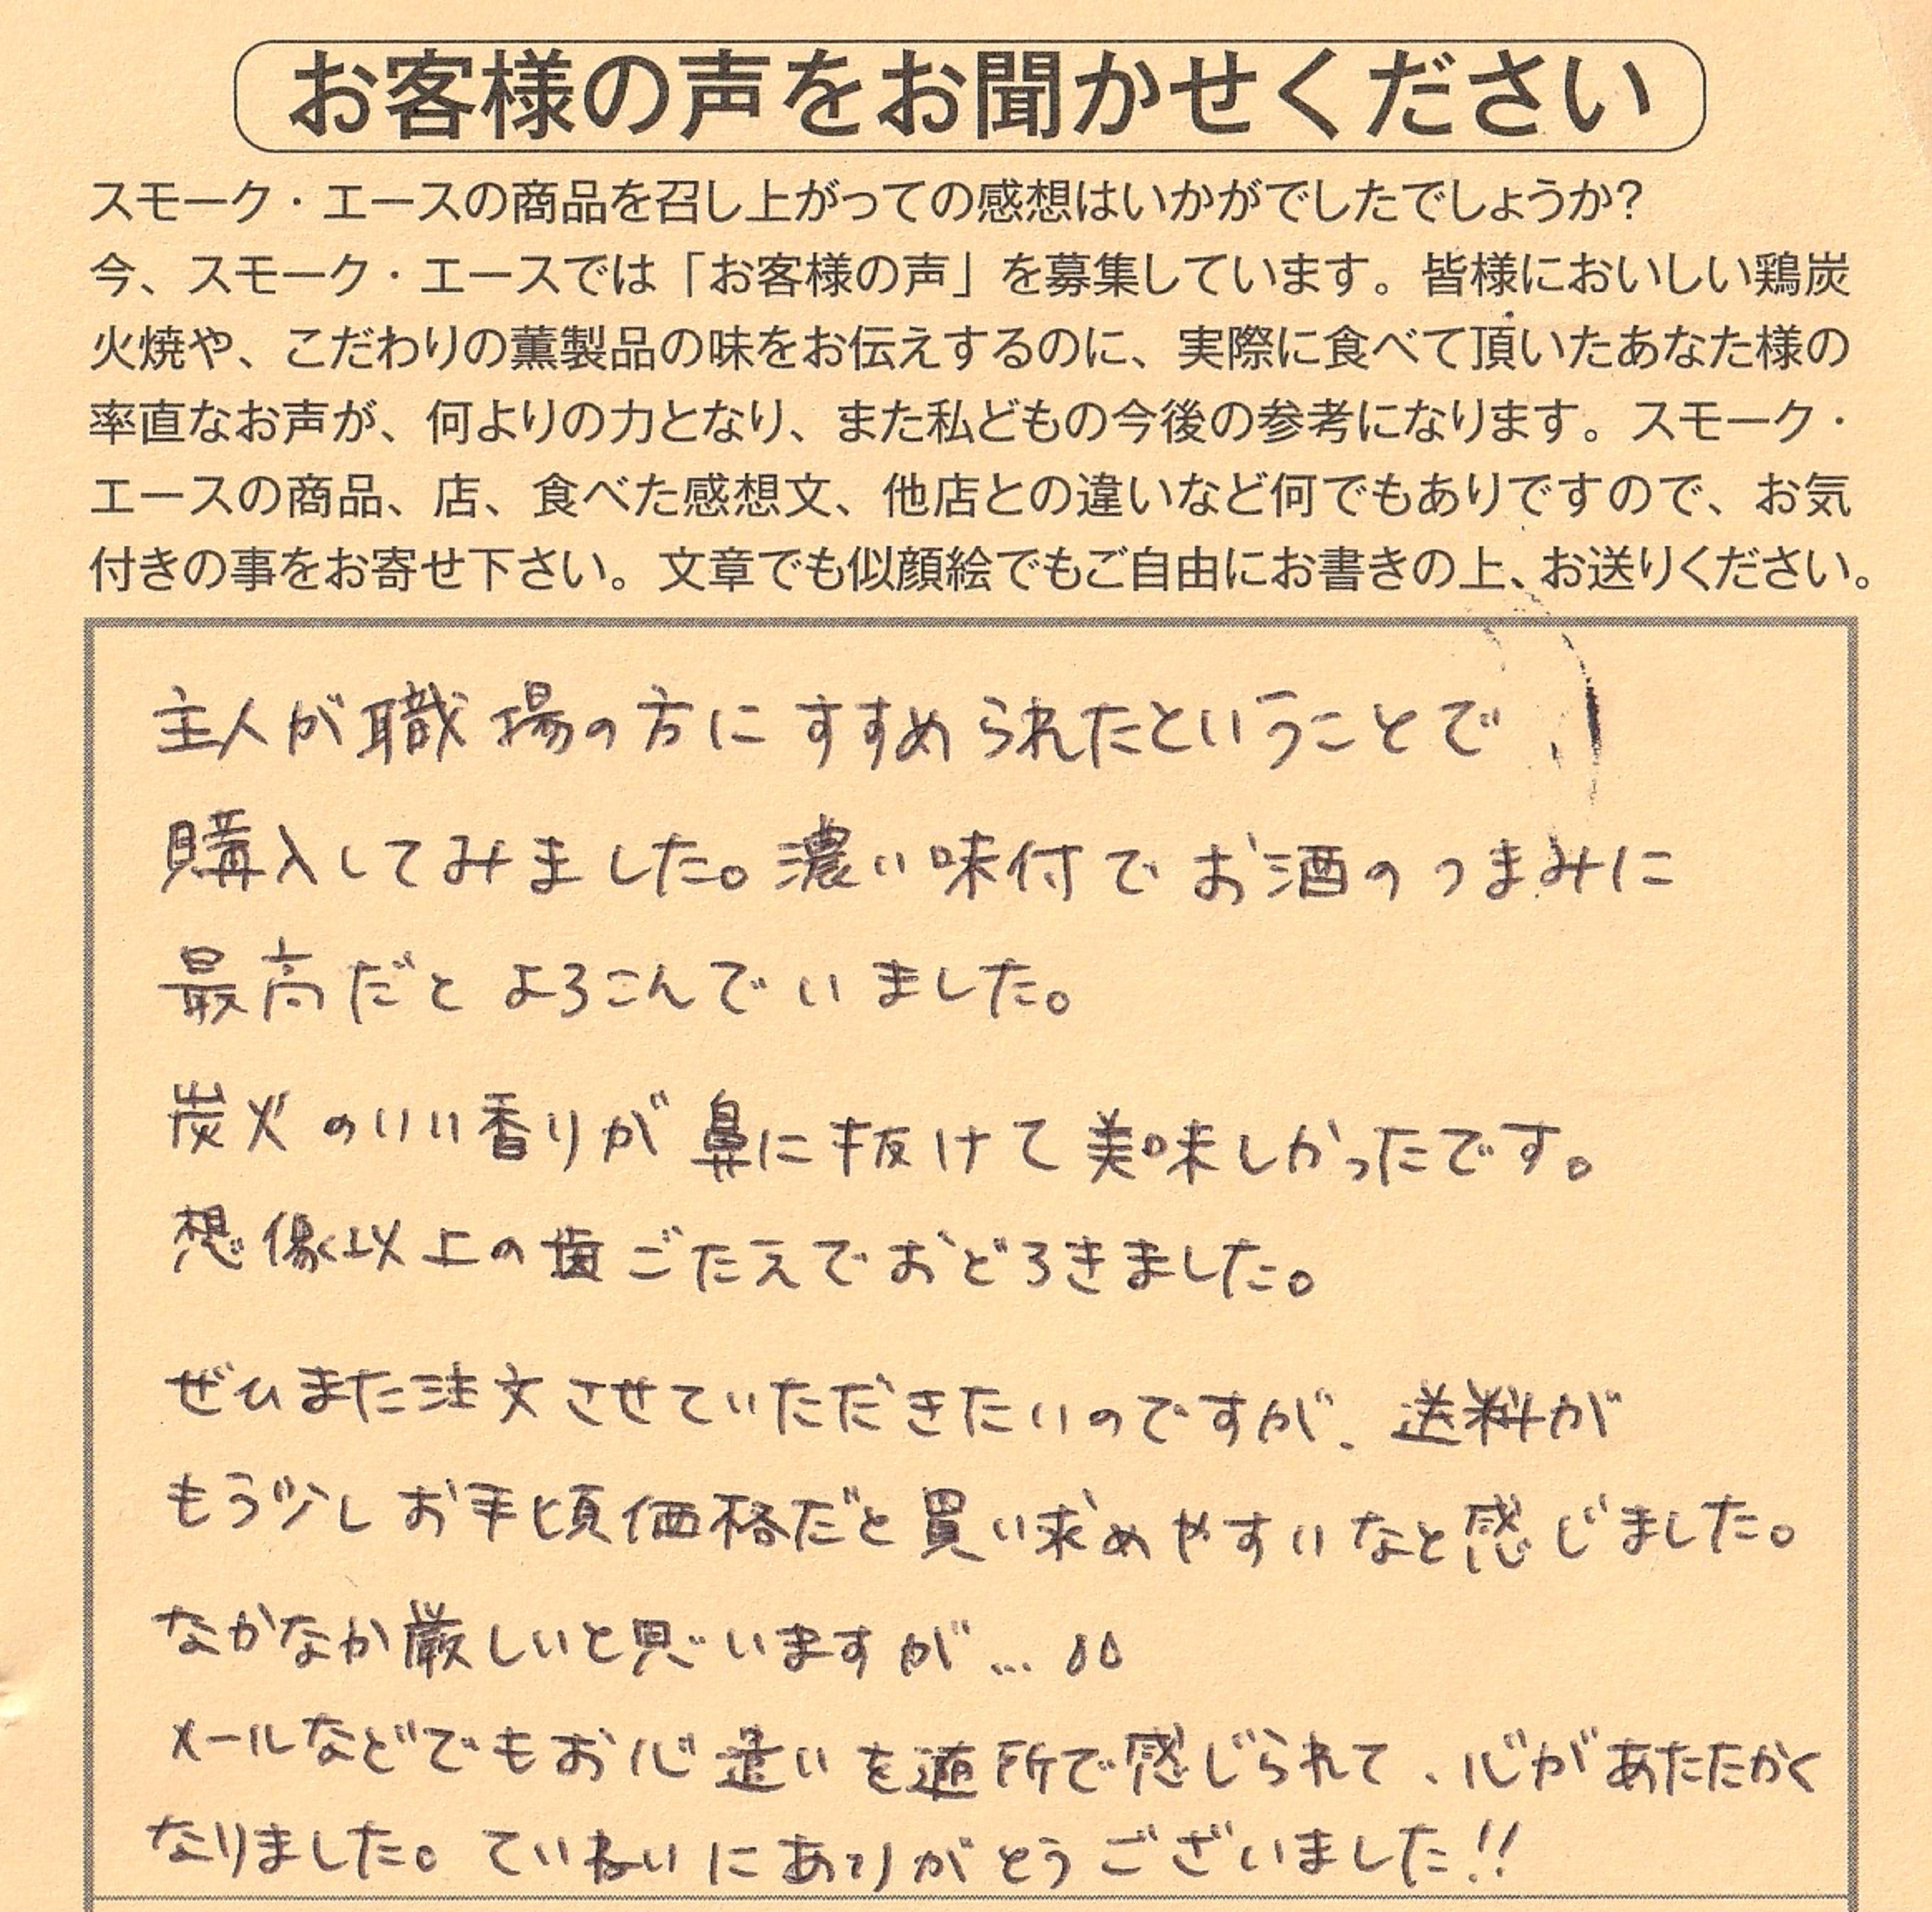 お客様の声をお聞かせください
スモーク・エースの商品を召し上がっての感想はいかがでしたでしょうか?
今、スモーク・エースでは「お客様の声」を募集しています。皆様においしい鶏炭
火焼や、こだわりの薫製品の味をお伝えするのに、実際に食べて頂いたあなた様の
率直なお声が、何よりの力となり、また私どもの今後の参考になります。スモーク・
エースの商品、店、食べた感想文、他店との違いなど何でもありですので、お気
付きの事をお寄せ下さい。文章でも似顔絵でもご自由にお書きの上、お送りください。
主人が職場の方にすすめられたということで
購入してみました。濃い味付でお酒のつまみに
最高だとよろこんでいました。
炭火のいい香りが鼻に抜けて美味しかったです。
想像以上の歯ごたえでおどろきました。
ぜひまた注文させていただきたいのですが、送料が
もう少しお手頃価格だと買い求めやすいなと感じました。
なかなか厳しいと思いますが…
メールなどでもお心遣いを随所で感じられて、心があたたかく
なりました。ていねいにありがとうございました!!